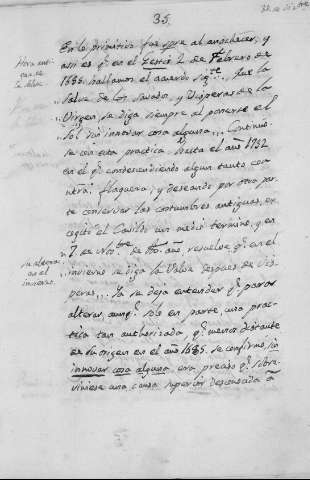 35.
En lo primitivo fue spre al anochecer, y
asi es q.e en el Sexto 2 de Febrero de
1685. hallamos el acuerdo sig.te Que la
Salva de los Savados, y Visperas de la
Virgen se diga siempre al ponerse el
Sol sin innovar cosa alguna... Continuo-
se con esta practica hasta el año 1732
en el q.e condescendiendo algun tanto con
ntra. flaqueza; y deseando por otra par-
te conservar las costumbres antiguas, es-
cogió el Cavildo un medio termino, y en
7. de Nov.bre de dho. año resuelve q.e en el
invierno se diga la Salva despues de Vis-
peras... Ya se deja entender q.e para
alterar, aunq.e solo en parte, una prac-
tica tan authorizada, q.e menor distante
de su origen en el año 1685. se confirmó, sin
innovar cosa alguna, era preciso q.e sobre-
viniese una causa superior descansada á
Hora anti-
gua de
la Salva.
su altera.on
en el
invierno.